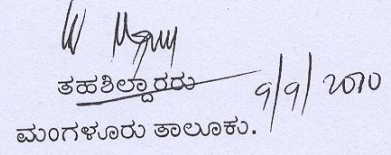 ತಹಶಿಲ್ದಾರರು 9/9/2010
ಮಂಗಳೂರು ತಾಲೂಕು.